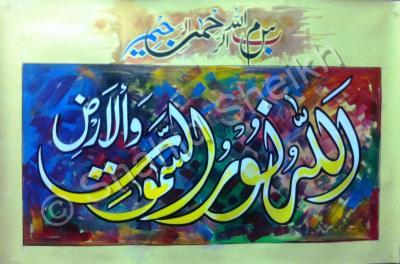 بسم الله الرحمن الرحيم
الله نور السموت والأرض
© Shahid Sheikh